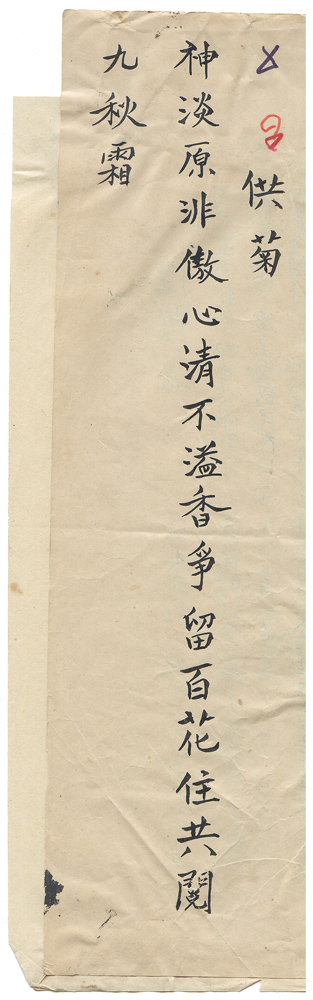 供菊
神淡原非傲心清不溢香爭留百花住共閱
九秋霜